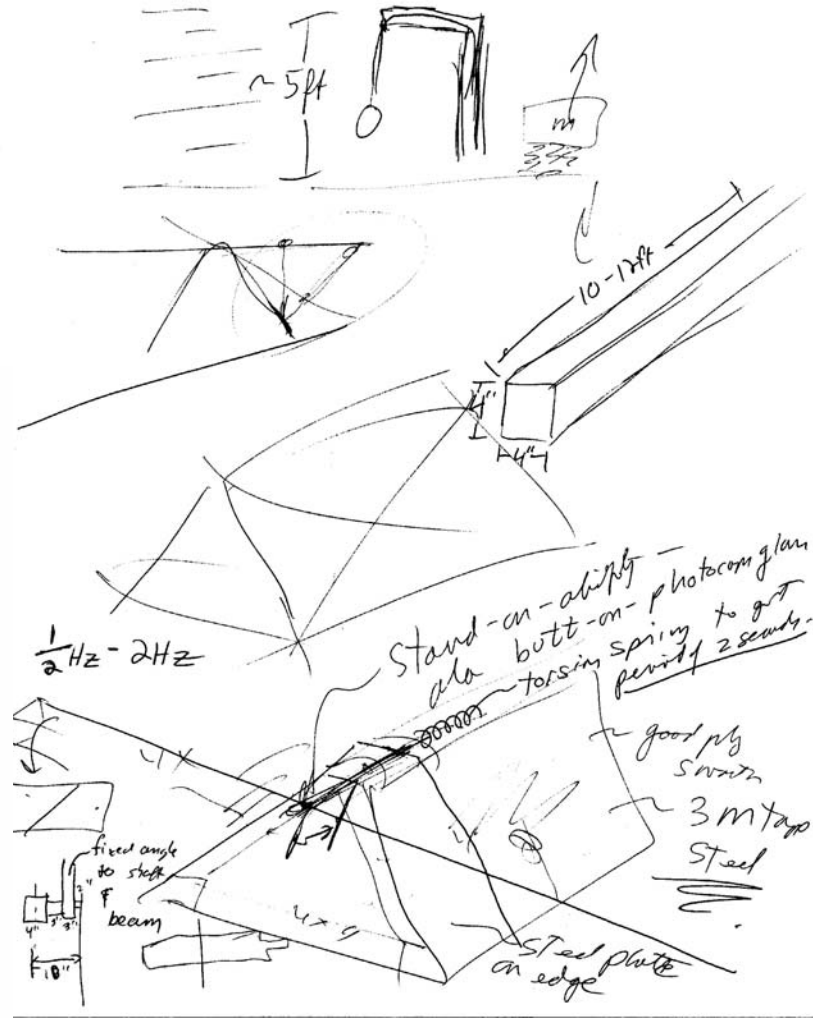 ~ 5ft
m
10-12ft
4"
4"
1/2 Hz - 2Hz
Stand-on-ability -
ala butt-on-photocopy glass
torsion spring to get
period 2 seconds.
~ good ply
~ 3m tape
Steel
fixed angle
to shaft
&
beam
4"
3"
18"
4x
steel plate
on edge